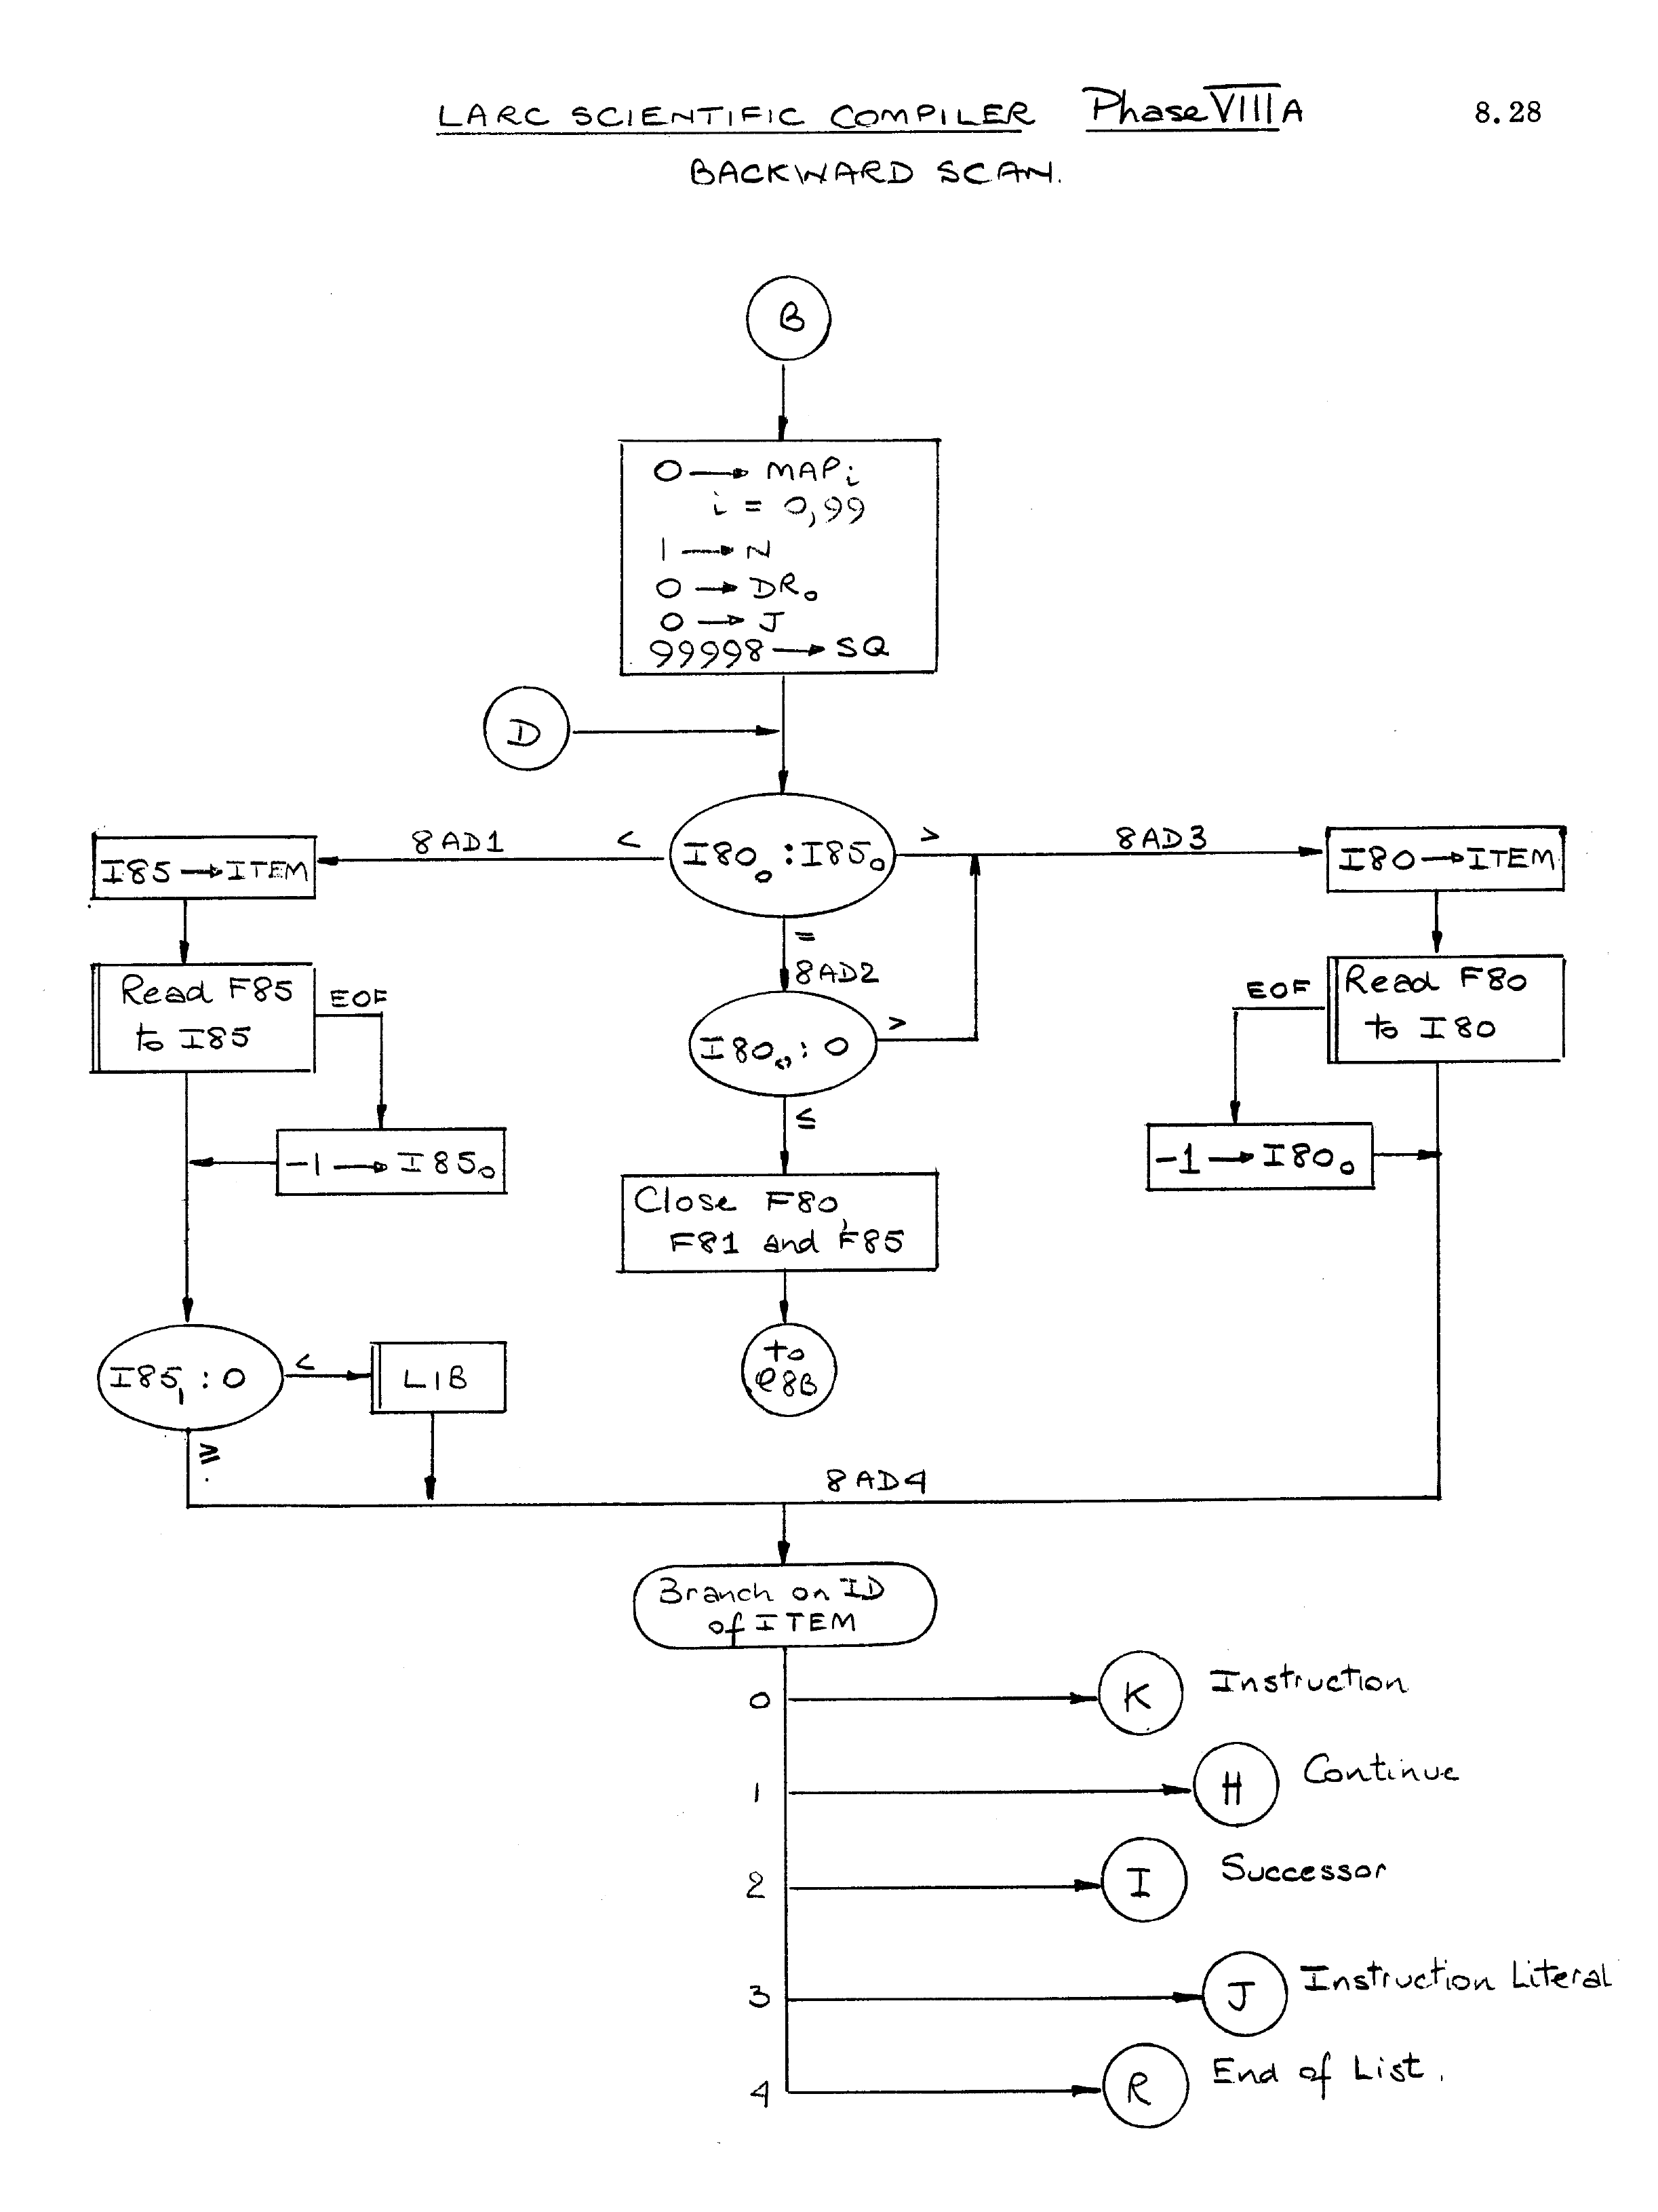 LARC SCIENTIFIC COMPILER Phase VIII A 8.28
BACKWARD SCAN.
B
0 → MAPi
i = 0,99
1 → N
0 → DR₀
0 → J
99998 → SQ
D
8AD1 < I80₀ : I85₀ > 8AD3
I85 → ITEM
I80 → ITEM
=
8AD2
Read F85
to I85
EOF
I80₀ : 0
>
EOF
Read F80
to I80
≤
-1 → I85₀
-1 → I80₀
Close F80,
F81 and F85
I85₁ : 0
<
LIB
to
≥
8AD4
Branch on ID
of ITEM
0 K Instruction
1 H Continue
2 I Successor
3 J Instruction Literal
4 R End of List.